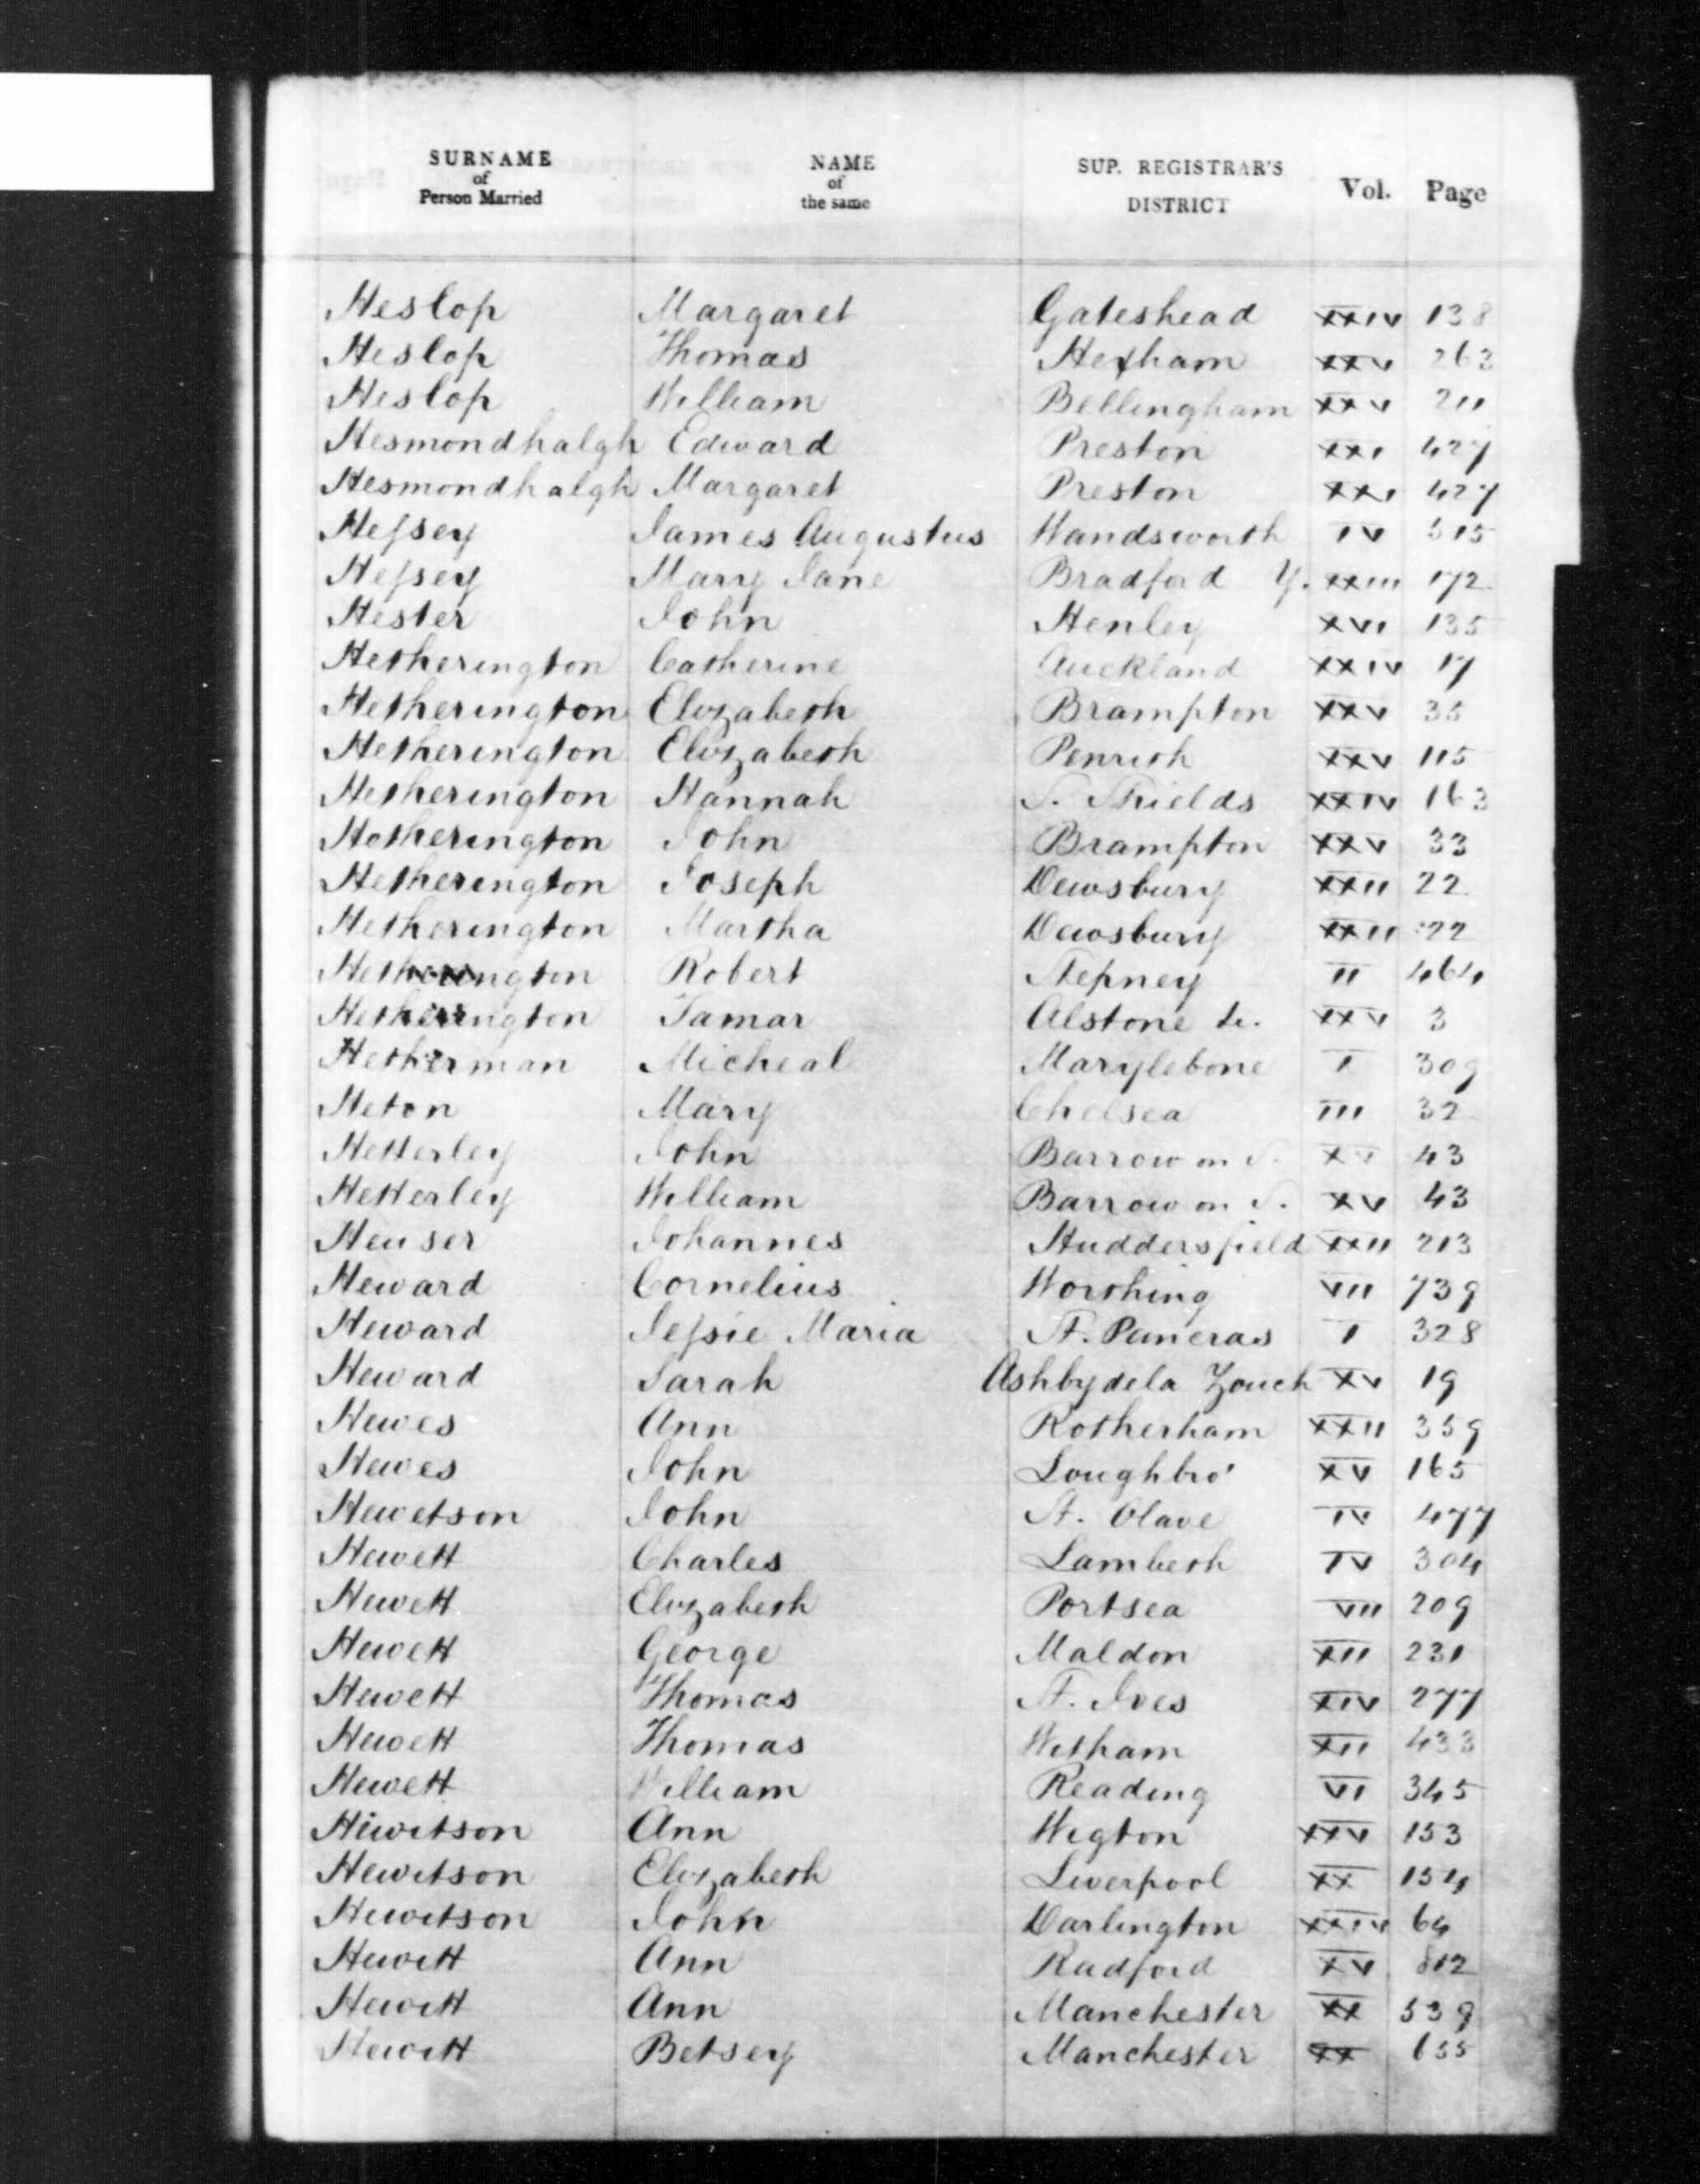 SURNAME of Person Married NAME of the same SUP. REGISTRAR'S DISTRICT Vol. Page
Heslop Margaret Gateshead XXIV 138
Heslop Thomas Hexham XXV 263
Heslop William Bellingham XXV 211
Hesmondhalgh Edward Preston XXI 427
Hesmondhalgh Margaret Preston XXI 427
Heſsey James Augustus Wandsworth IV 515
Heſsey Mary Jane Bradford Y. XXIII 172
Hester John Henley XVI 135
Hetherington Catherine Auckland XXIV 17
Hetherington Elizabeth Brampton XXV 35
Hetherington Elizabeth Penrith XXV 115
Hetherington Hannah S. Shields XXIV 163
Hetherington John Brampton XXV 33
Hetherington Joseph Dewsbury XXII 22
Hetherington Martha Dewsbury XXII 22
Hetherington Robert Stepney II 464
Hetherington Tamar Alstone &c. XXV 3
Hetherman Micheal Marylebone I 309
Heton Mary Chelsea III 32
Hetterley John Barrow on S. XV 43
Hetterley William Barrow on S. XV 43
Heuser Johannes Huddersfield XXII 213
Heward Cornelius Worthing VII 739
Heward Jeſsie Maria St. Pancras I 328
Heward Sarah Ashby de la Zouch XV 19
Hewes Ann Rotherham XXII 359
Hewes John Loughbro' XV 165
Hewetson John St. Olave IV 477
Hewett Charles Lambeth IV 304
Hewett Elizabeth Portsea VII 209
Hewett George Maldon XII 231
Hewett Thomas St. Ives XIV 277
Hewett Thomas Witham XII 433
Hewett William Reading VI 345
Hewitson Ann Wigton XXV 153
Hewitson Elizabeth Liverpool XX 154
Hewitson John Darlington XXIV 64
Hewitt Ann Radford XV 812
Hewitt Ann Manchester XX 539
Hewitt Betsey Manchester XX 655